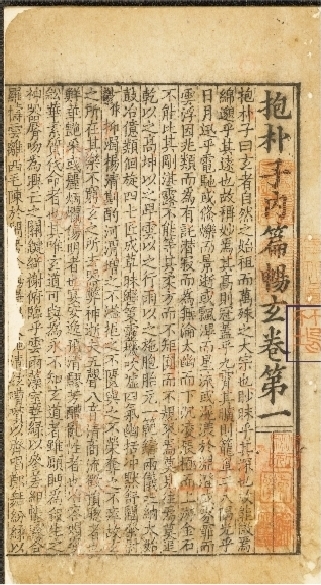 抱朴子内篇暢玄卷第一
抱朴子曰玄者自然之始祖而萬殊之大宗也眇昧乎其深也故稱微焉
綿邈乎其遠也故稱妙焉其高則冠蓋乎九霄其曠則籠罩乎八隅光乎
日月迅乎電馳或倏爍而景逝或飄滭而星流或滉漾於淵澄或雰霏而
雲浮因兆類而為有託潛寂而為無淪太幽而下沉凌辰極而上游金石
不能比其剛湛露不能等其柔方而不矩圓而不規來焉莫見往焉莫追
乾以之高坤以之卑雲以之行雨以之施胞胎元一範鑄兩儀吐納太始
鼓冶億類佪旋四七匠成草昧轡策靈機吹噓四氣幽括沖默舒闡粲尉
抑濁揚清斟酌河渭增之不溢挹之不匱與之不榮奪之不瘁故玄
之所在其樂不窮玄之所去器弊神逝夫五聲八音清商流徵損聰者也
鮮華艷采彧麗炳爛傷明者也宴安逸豫清醪芳醴亂性者也冶容媚姿
鉛華素質伐命者也其唯玄道可與為永不知玄道者雖顧眄為生殺之
神器脣吻為興亡之關鍵綺榭俯臨乎雲雨藻室華綠以參差組帳霧合
羅幬雲離西毛陳於閒房金觴華以交馳清絃嘈囋以齊唱鄭舞紛